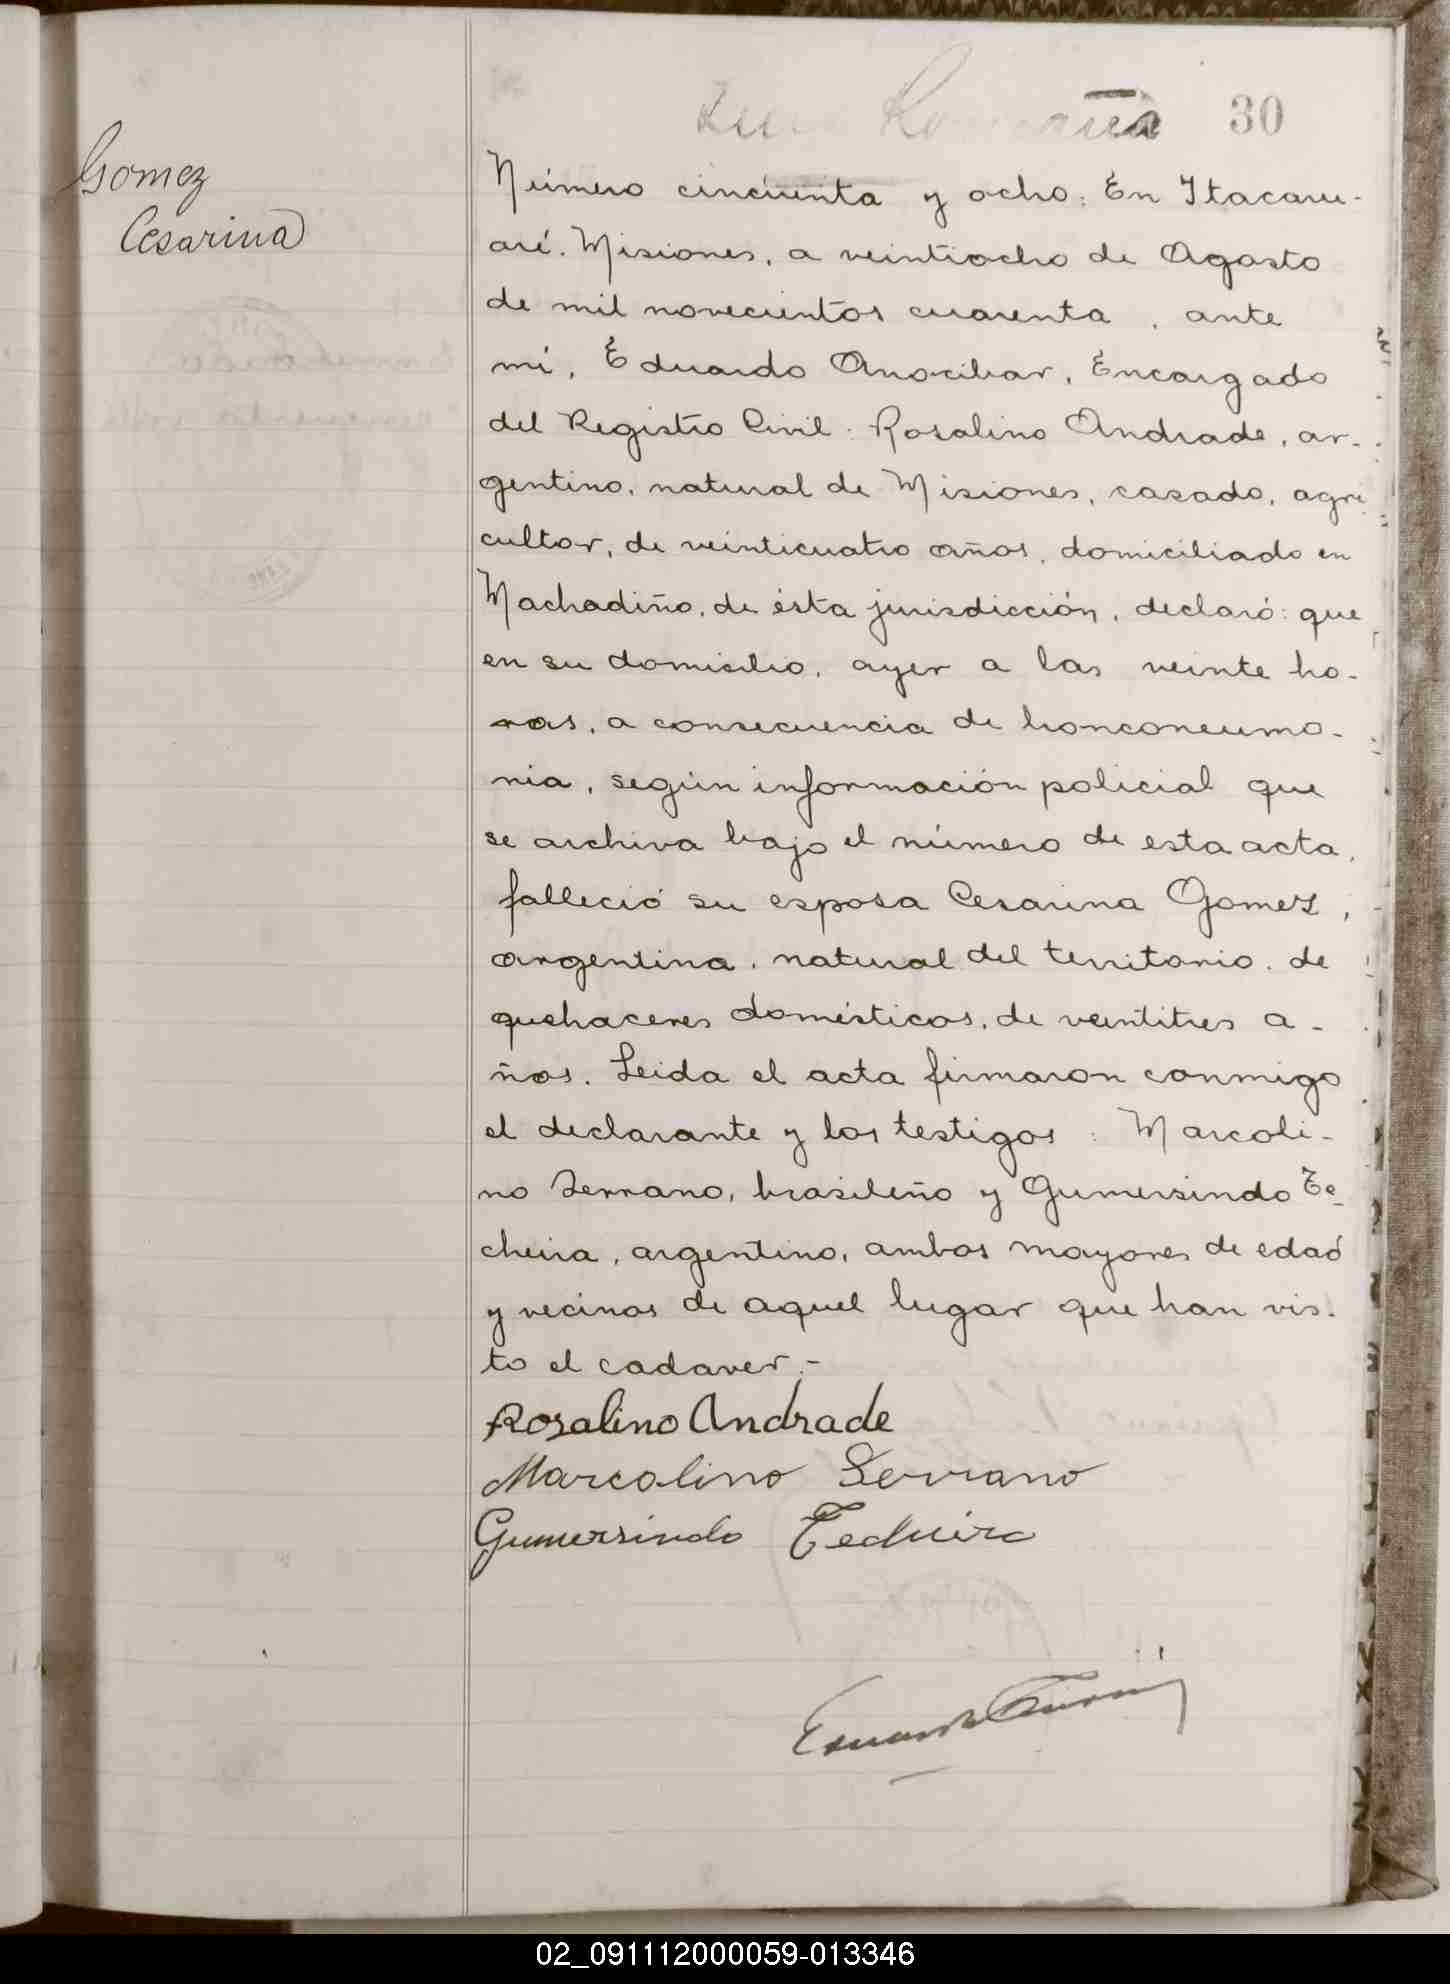 30
Gomez
Cesarina
Número cincuenta y ocho: En Itacaru-
aré. Misiones, a veintiocho de Agosto
de mil novecientos cuarenta, ante
mi, Eduardo Anocibar, Encargado
del Registro Civil: Rosalino Andrade, ar-
gentino, natural de Misiones, casado, agri
cultor, de veinticuatro años, domiciliado en
Machadiño, de ésta jurisdicción, declaró: que
en su domicilio, ayer a las veinte ho-
ras, a consecuencia de bronconeumo-
nia, según información policial que
se archiva bajo el número de esta acta,
falleció su esposa Cesarina Gomez,
argentina, natural del territorio, de
quehaceres domésticos, de veintitres a-
ños. Leida el acta firmaron conmigo
el declarante y los testigos: Marcoli-
no Serrano, brasileño y Gumersindo Te-
cheira, argentino, ambos mayores de edad
y vecinos de aquel lugar que han vis-
to el cadaver.-
Rosalino Andrade
Marcolino Serrano
Gumersindo Techeira
02_091112000059-013346